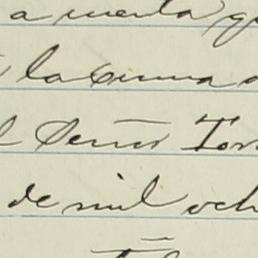 a cuenta q
la suma d
l Señor Tor
de mil och